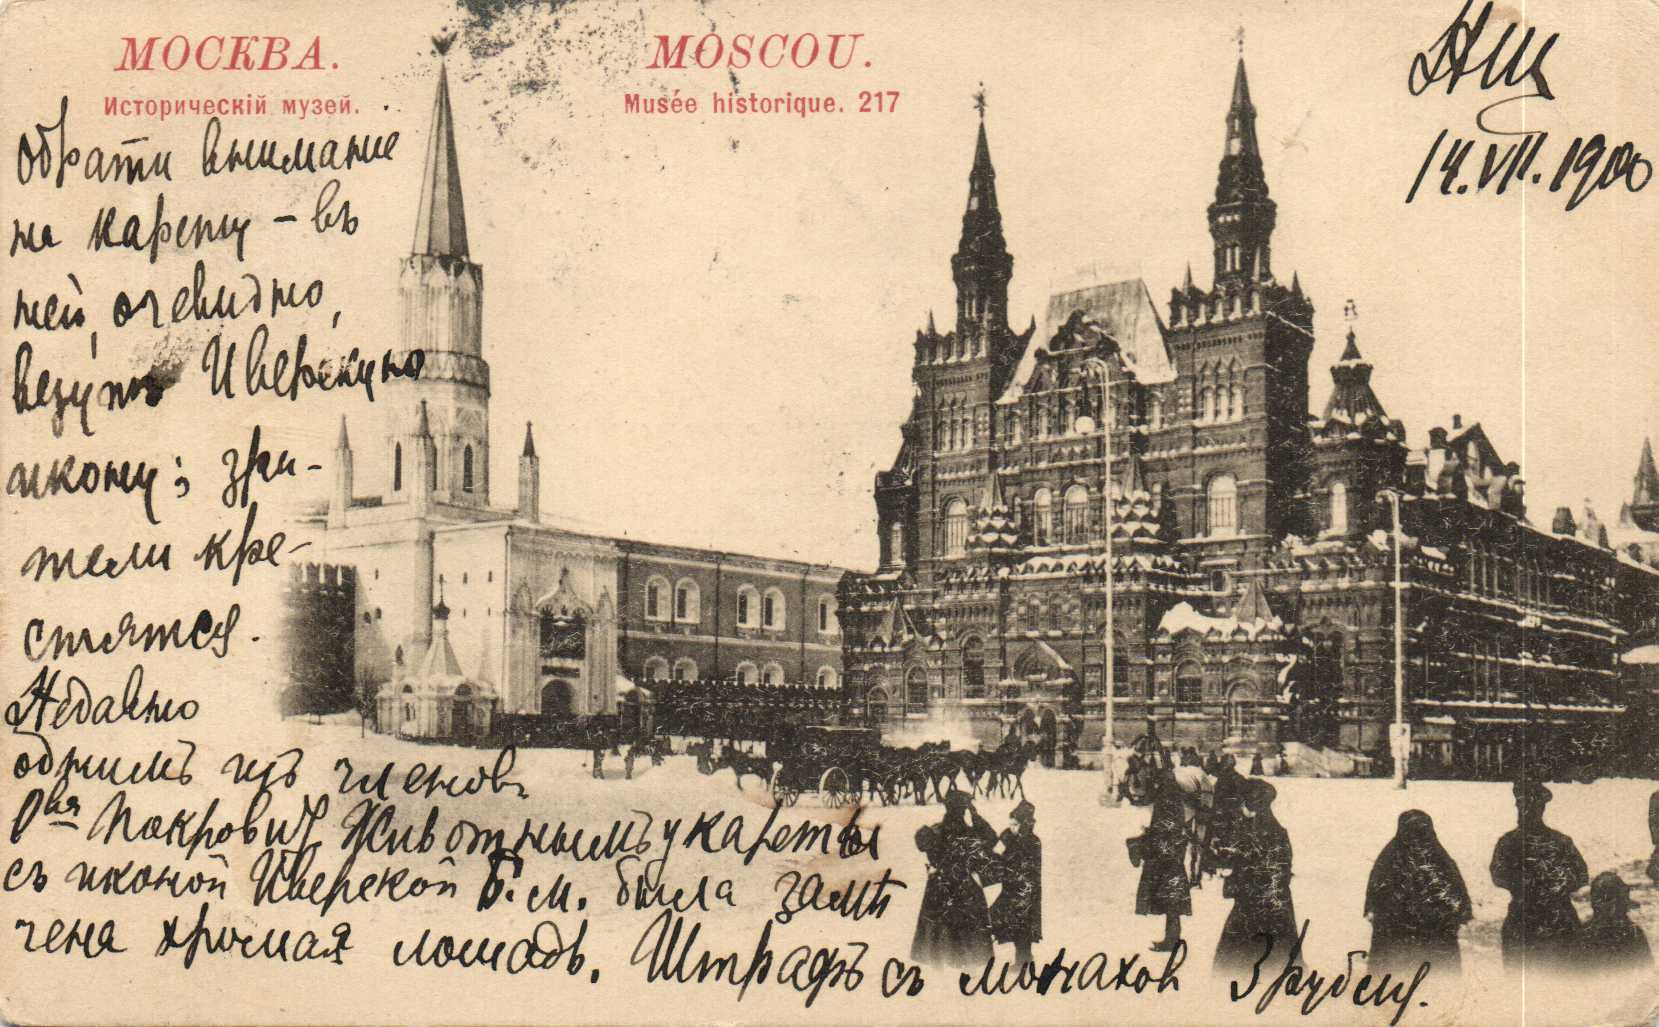 МОСКВА.
Историческій музей.
MOSCOU.
Musée historique. 217
НЩ
14.VII.1900
Обрати вниманіе
на карету – въ
ней, очевидно,
везутъ Иверскую
икону; зри-
тели кре-
стятся.
Недавно
однимъ изъ членовъ
О-ва Покровит. Животнымъ у кареты
съ иконой Иверской Б.М. была замѣ
чена хромая лошадь. Штрафъ съ монаховъ 3 рубля.